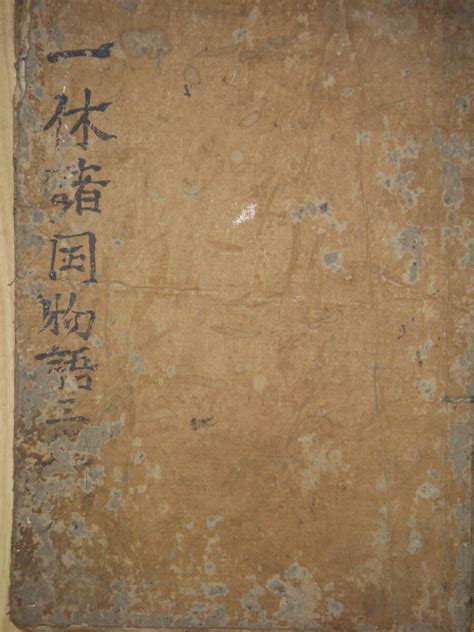 一休諸国物語三